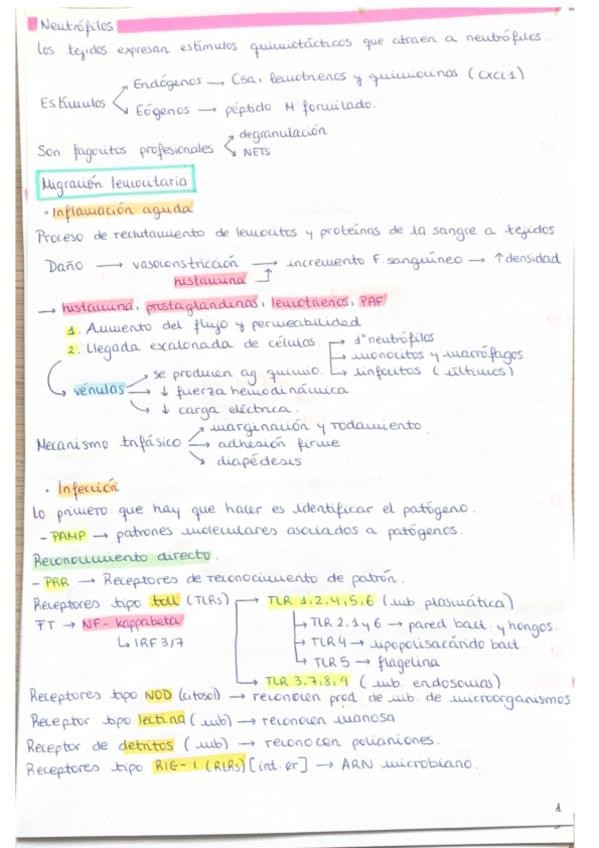 Neutrófilos
Los tejidos expresan estímulos quimiotácticos que atraen a neutrófilos.
Estímulos
Endógenos → C5a, leucotrienos y quimiocinas (CXCL1)
Eógenos → péptido N formilado.
Son fagocitos profesionales
degranulación
NETS
Migración leucocitaria
· Inflamación aguda
Proceso de reclutamiento de leucocitos y proteínas de la sangre a tejidos
Daño → vasoconstricción → incremento F. sanguíneo → ↑ densidad
histamina
→ histamina, prostaglandinas, leucotrienos, PAF
1. Aumento del flujo y permeabilidad
2. Llegada escalonada de células.
1º neutrófilos
monocitos y macrófagos
linfocitos (últimos)
vénulas
se producen ag. quimio.
↓ fuerza hemodinámica
↓ carga eléctrica.
Mecanismo trifásico
marginación y rodamiento.
adhesión firme
diapédesis
· Infección
Lo primero que hay que hacer es identificar el patógeno.
- PAMP → patrones moleculares asociados a patógenos.
Reconocimiento directo.
- PRR → Receptores de reconocimiento de patrón.
Receptores tipo toll (TLRs)
TLR 1,2,4,5,6 (mb. plasmática)
FT → NF-kappabeta
TLR 2,1 y 6 → pared bact. y hongos.
IRF 3/7
TLR4 → lipopolisacárido bact.
TLR 5 → flagelina
TLR 3,7,8,9 (mb. endosomas)
Receptores tipo NOD (citosol) → reconocen prod. de mb. de microorganismos
Receptor tipo lectina (mb) → reconocen manosa
Receptor de detritos (mb) → reconocen polianiones.
Receptores tipo RIG-1 (RLRs) [int. cr] → ARN microbiano.
1